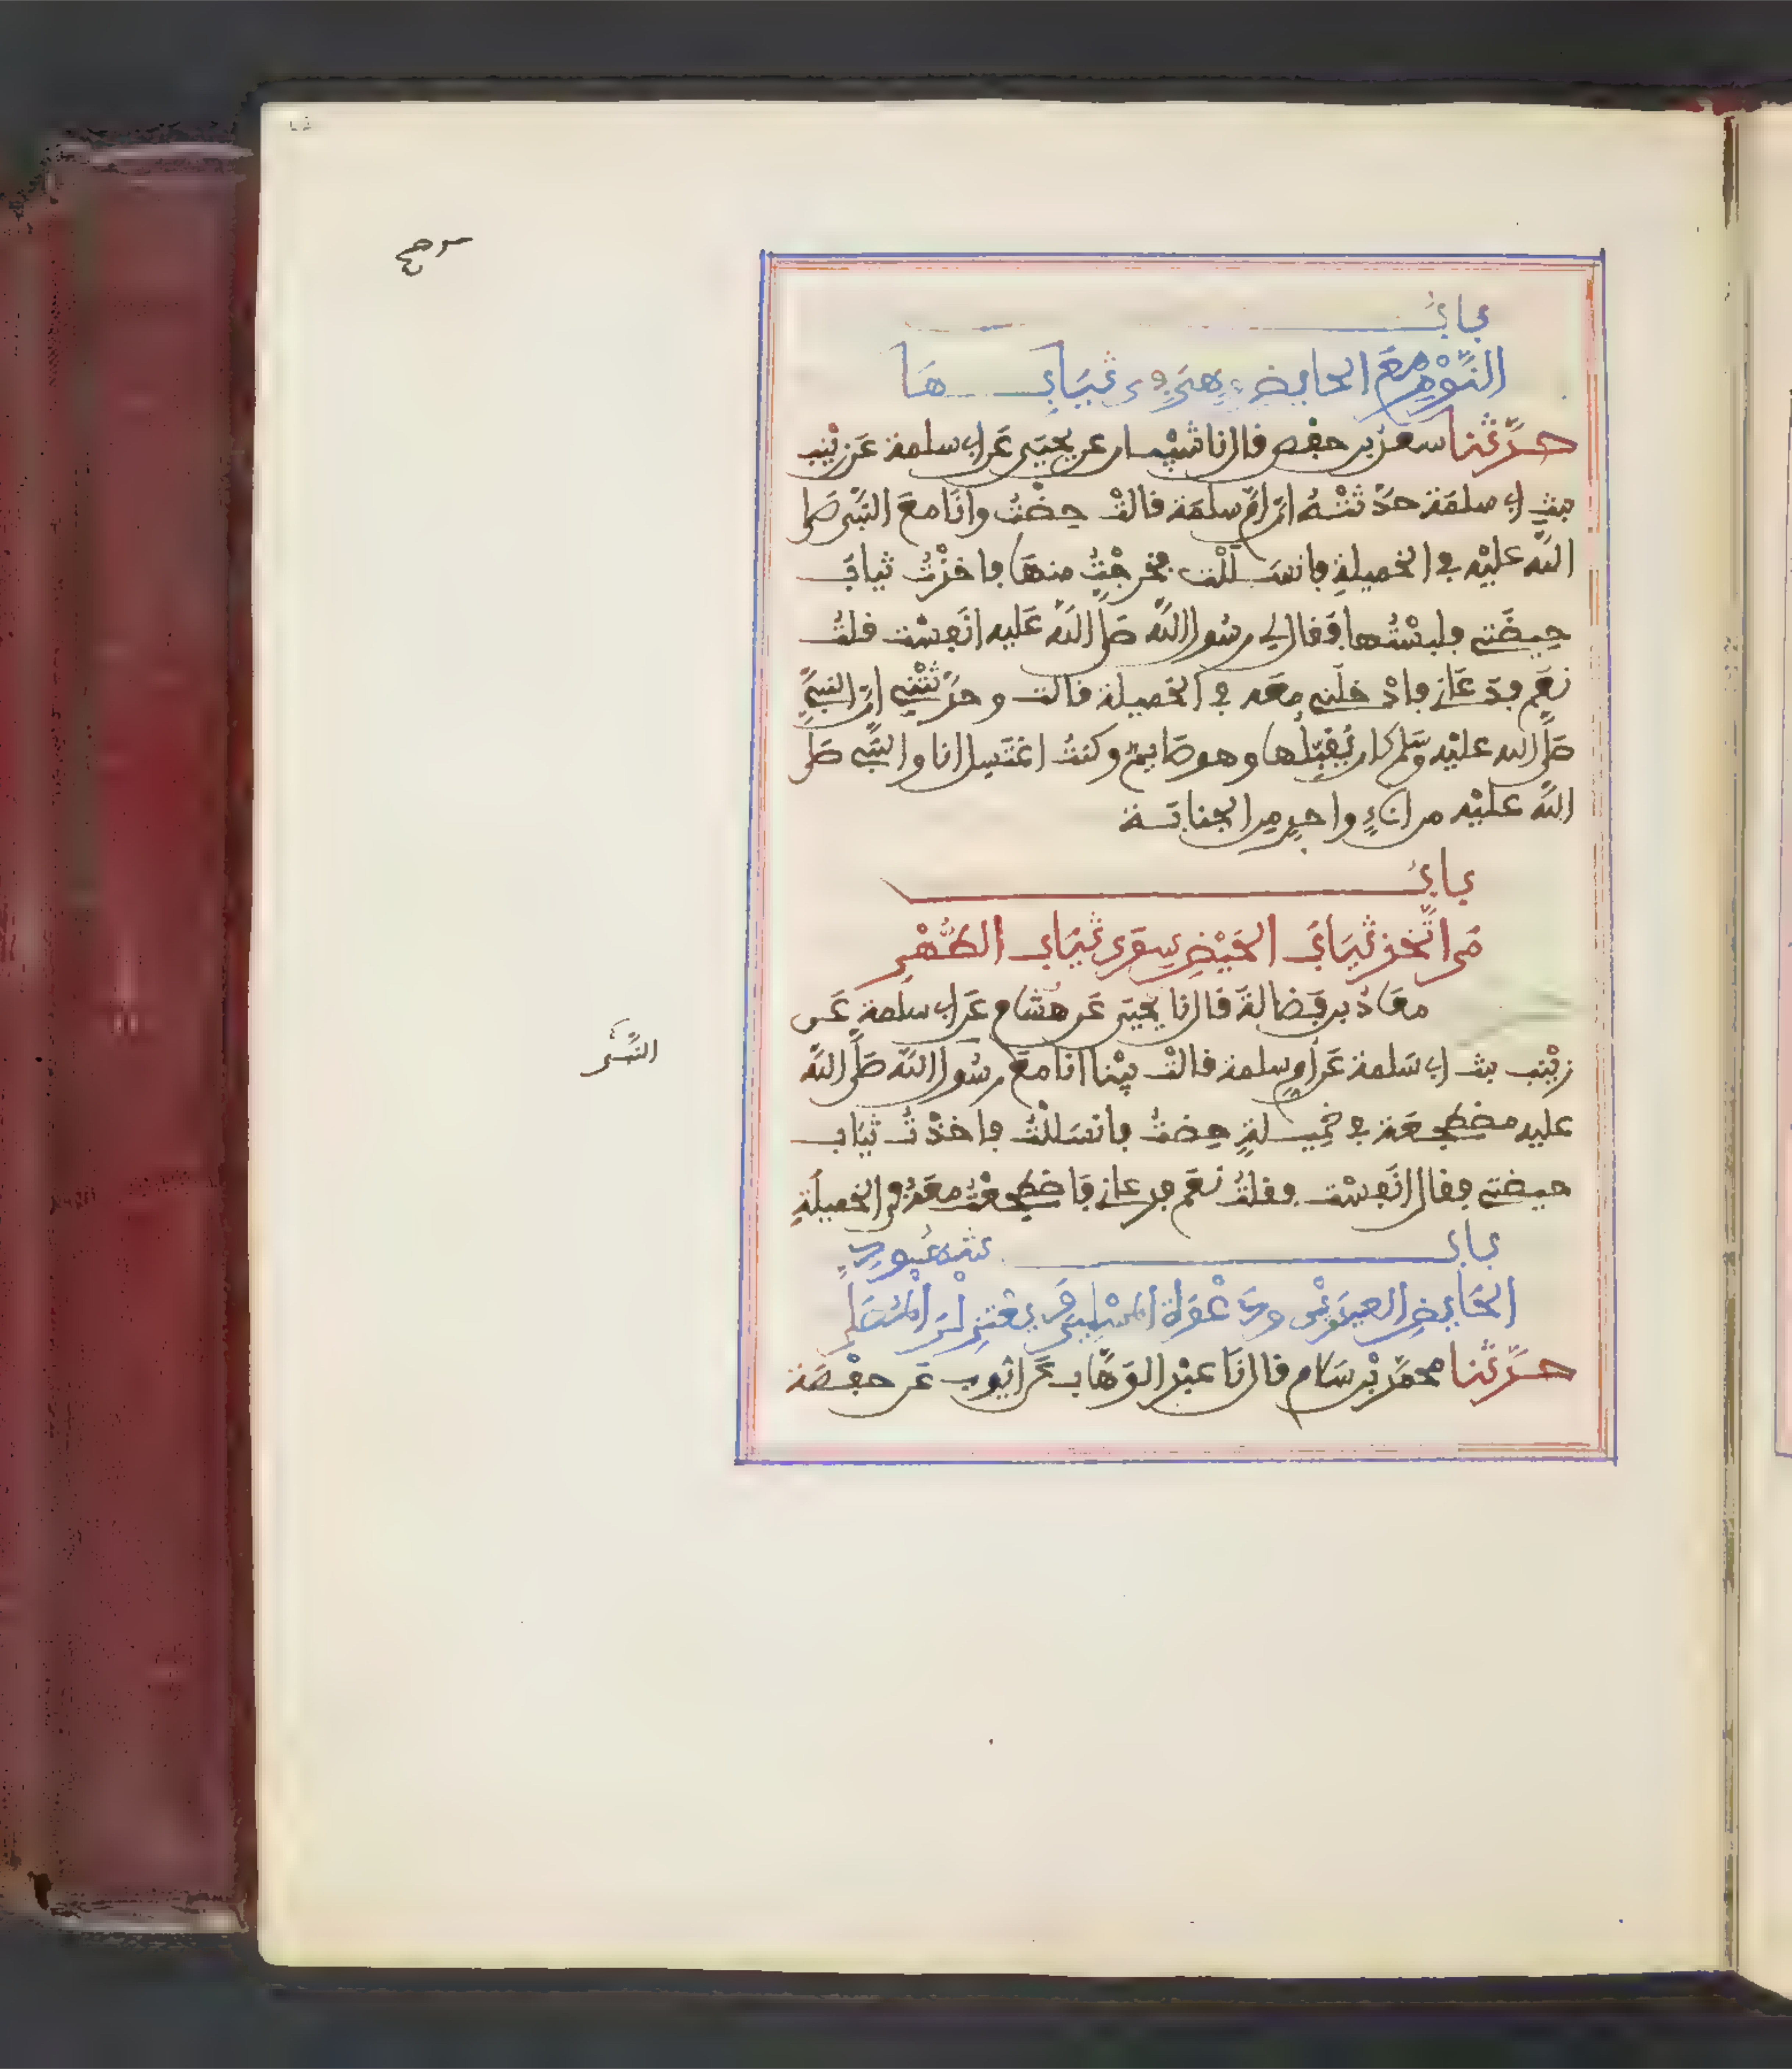 باب
النَّوْمِ مَعَ الحايض وهي في ثيابها
حدثنا سعد بن حفص قال نا شيبان عن يحيى عن ابي سلمة عن زينب
بنت ابي سلمة حدثته ان ام سلمة قالت حضت وانا مع النبي صلى
الله عليه في الخميلة فانسللت فخرجت منها فاخذت ثياب
حيضتي فلبستها فقال لي رسول الله صلى الله عليه انفست قلت
نعم فدعاني فادخلني معه في الخميلة قالت وحدثتني ان النبي
صلى الله عليه وسلم كان يقبلها وهو صايم وكنت اغتسل انا والنبي صلى
الله عليه من اناء واحد من الجنابة
باب
من اتخذ ثياب الحيض سوى ثياب الطهر
معاذ بن فضالة قال نا يحيى عن هشام عن ابي سلمة عن
زينب بنت ابي سلمة عن ام سلمة قالت بينا انا مع رسول الله صلى الله
عليه مضطجعة في خميلة حضت فانسللت فاخذت ثياب
حيضتي فقال انفست فقلت نعم فدعاني فاضطجعت معه في الخميلة
باب شهود
الحايض العيدين ودعوة المسلمين ويعتزلن المصلى
حدثنا محمد بن سلام قال نا عبد الوهاب عن ايوب عن حفصة